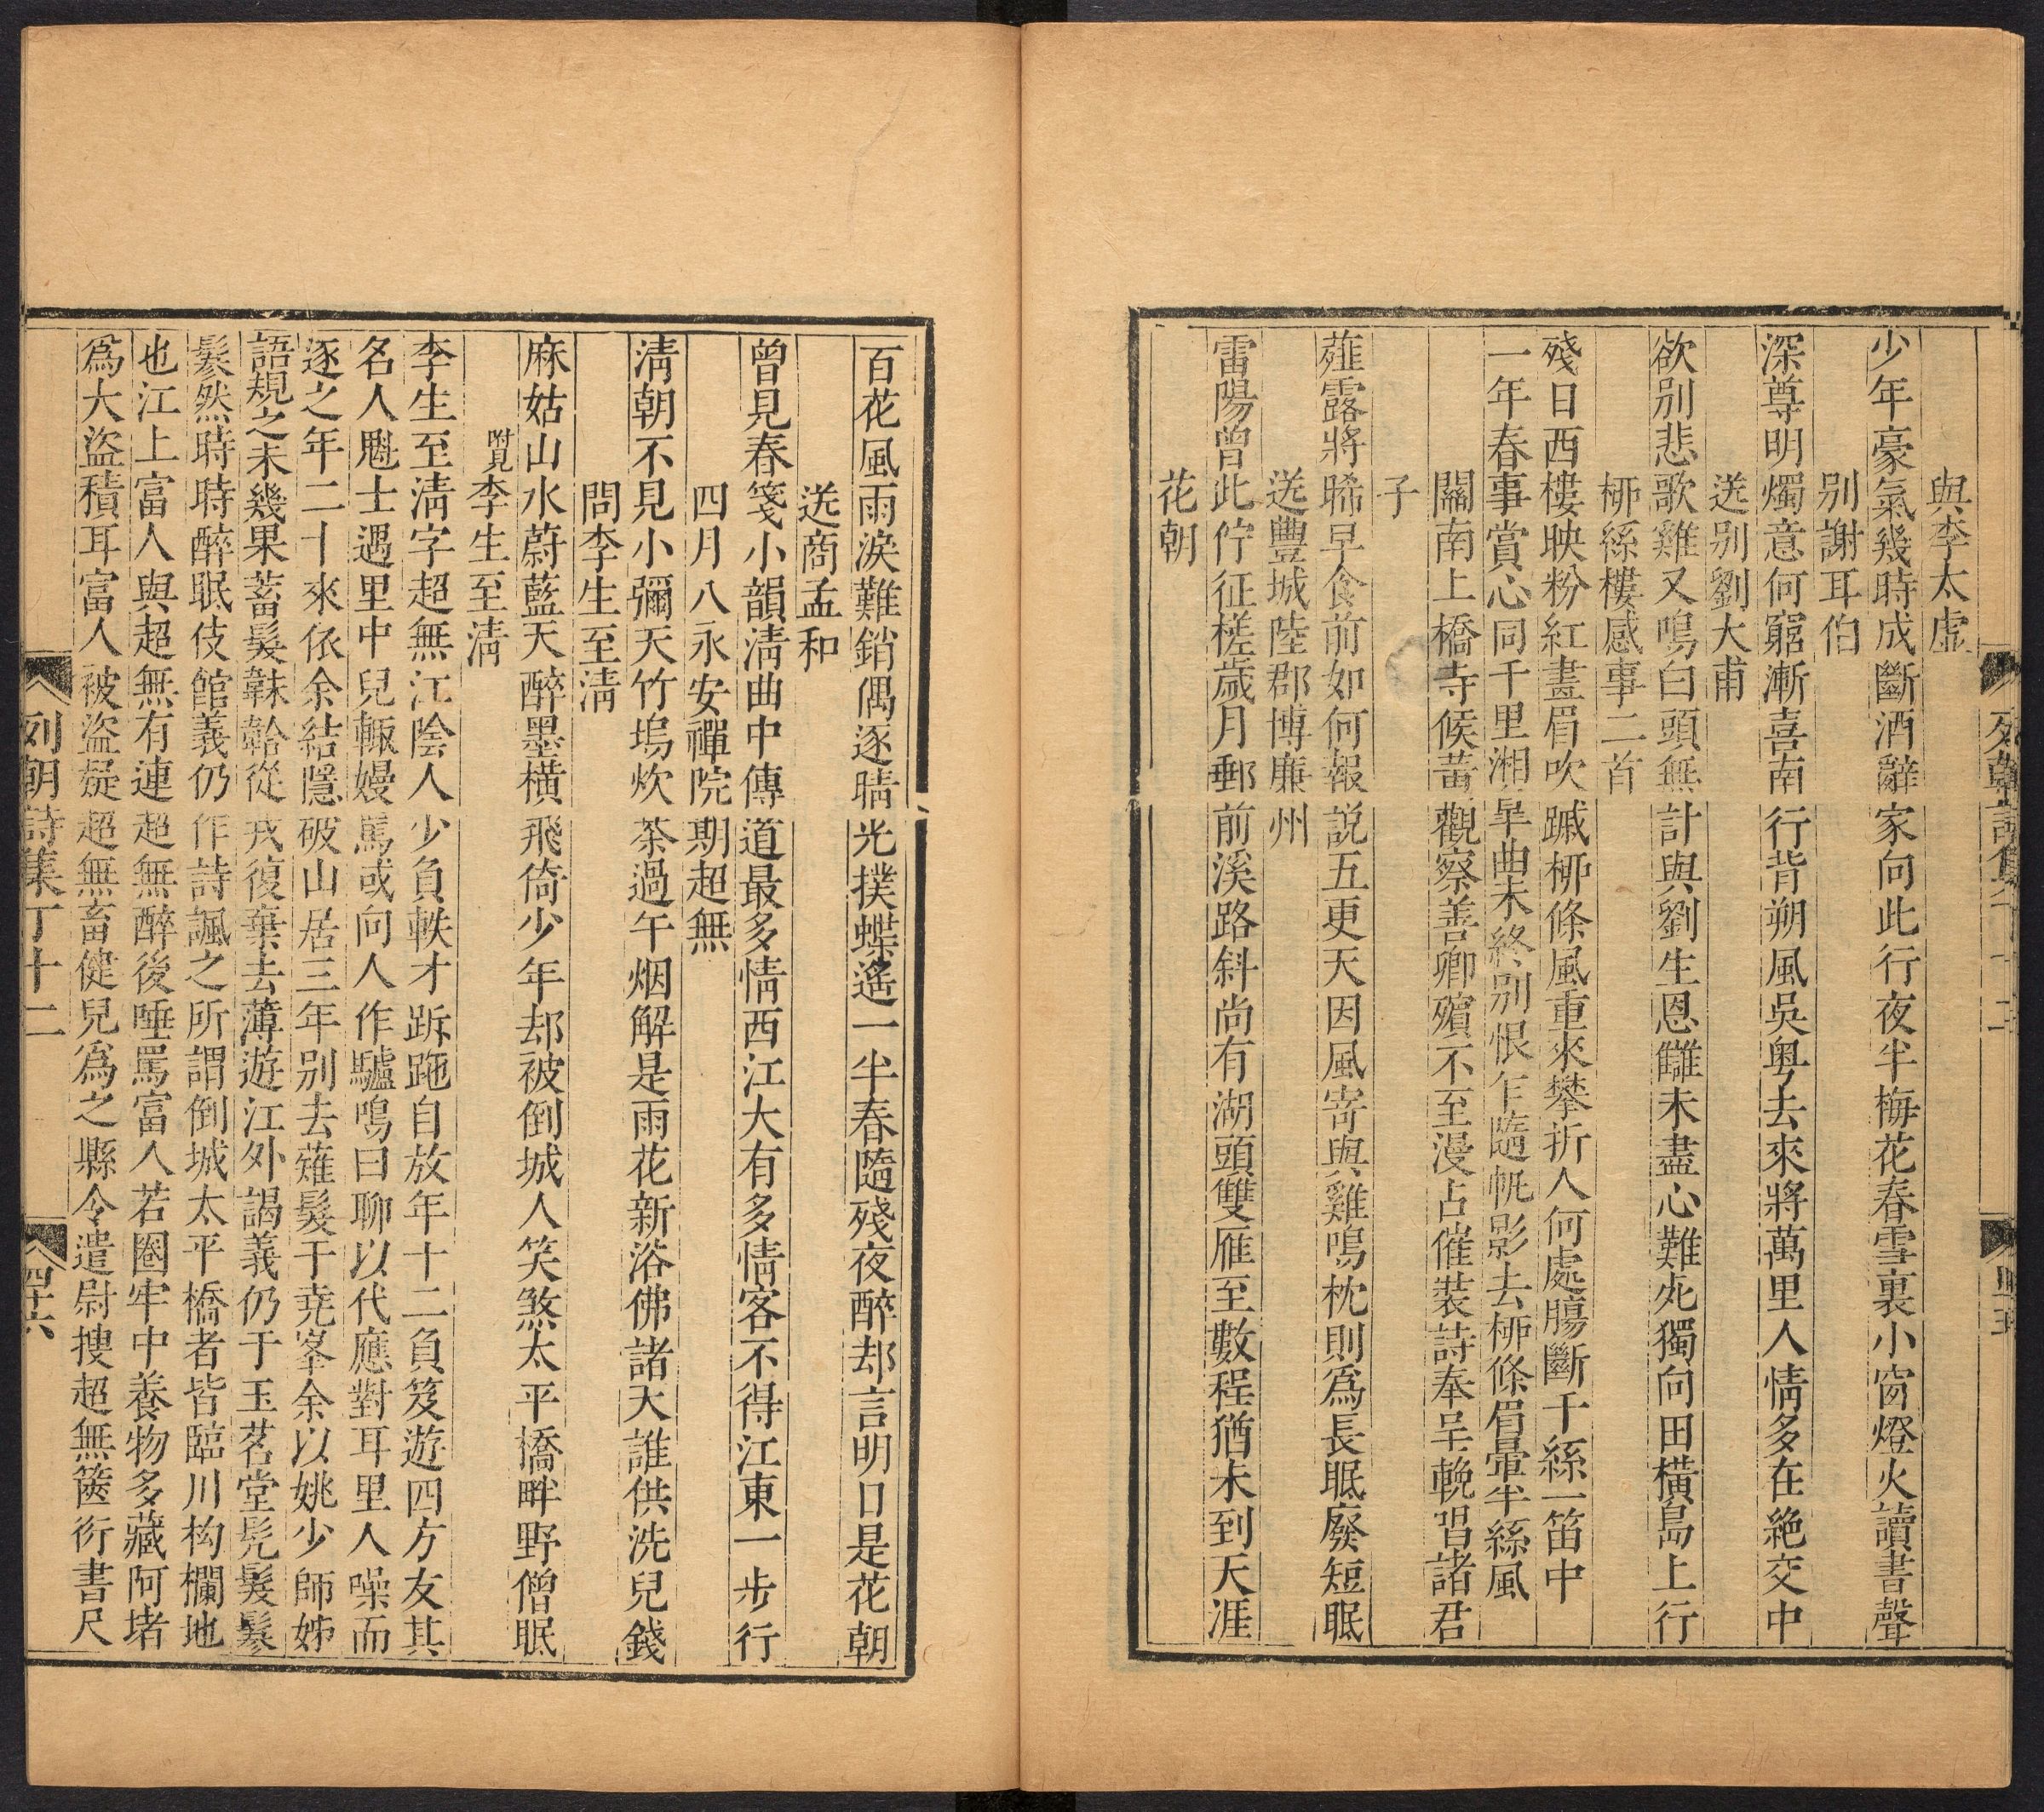 與李太虛
少年豪氣幾時成斷酒辭家向此行夜半梅花春雪裏小窗燈火讀書聲
別謝耳伯
深尊明燭意何窮漸喜南行背朔風吳粤去來將萬里人情多在絶交中
送別劉大甫
欲別悲歌雞又鳴白頭無計與劉生恩讎未盡心難死獨向田橫島上行
柳絲樓感事二首
殘日西樓映粉紅畫眉吹蹴柳條風重來攀折人何處腸斷千絲一笛中
一年春事賞心同千里湘皐曲未終別恨乍隨帆影去柳條眉暈半絲風
關南上橋寺候黃觀察善卿殯不至漫占催裝詩奉呈輓唱諸君
子
薤露將晞早食前如何報說五更天因風寄與雞鳴枕則爲長眠廢短眠
送豐城陸郡博廉州
雷陽曾此佇征槎歲月郵前溪路斜尚有湖頭雙雁至數程猶未到天涯
花朝
百花風雨淚難銷偶逐晴光撲蝶遙一半春隨殘夜醉却言明日是花朝
送商孟和
曾見春箋小韻淸曲中傳道最多情西江大有多情客不得江東一步行
四月八永安禪院期超無
淸朝不見小彌天竹塢炊茶過午烟解是雨花新浴佛諸天誰供洗兒錢
問李生至淸
麻姑山水蔚藍天醉墨橫飛倚少年却被倒城人笑煞太平橋畔野僧眠
附見李生至淸
李生至淸字超無江陰人少負軼才跅跎自放年十二負笈遊四方友其
名人魁士遇里中兒輙嫚罵或向人作驢鳴曰聊以代應對耳里人噪而
逐之年二十來依余結隱破山居三年別去薙髮于堯峯余以姚少師姊
語規之未幾果蓄髮韎韐從戎復棄去薄遊江外謁義仍于玉茗堂髠髮鬖
鬖然時時醉眠伎館義仍作詩諷之所謂倒城太平橋者皆臨川构欄地
也江上富人與超無有連超無醉後唾罵富人若圈牢中養物多藏阿堵
爲大盜積耳富人被盜疑超無畜健兒爲之縣令遣尉搜超無篋衍書尺
列朝詩集丁十二
四十六